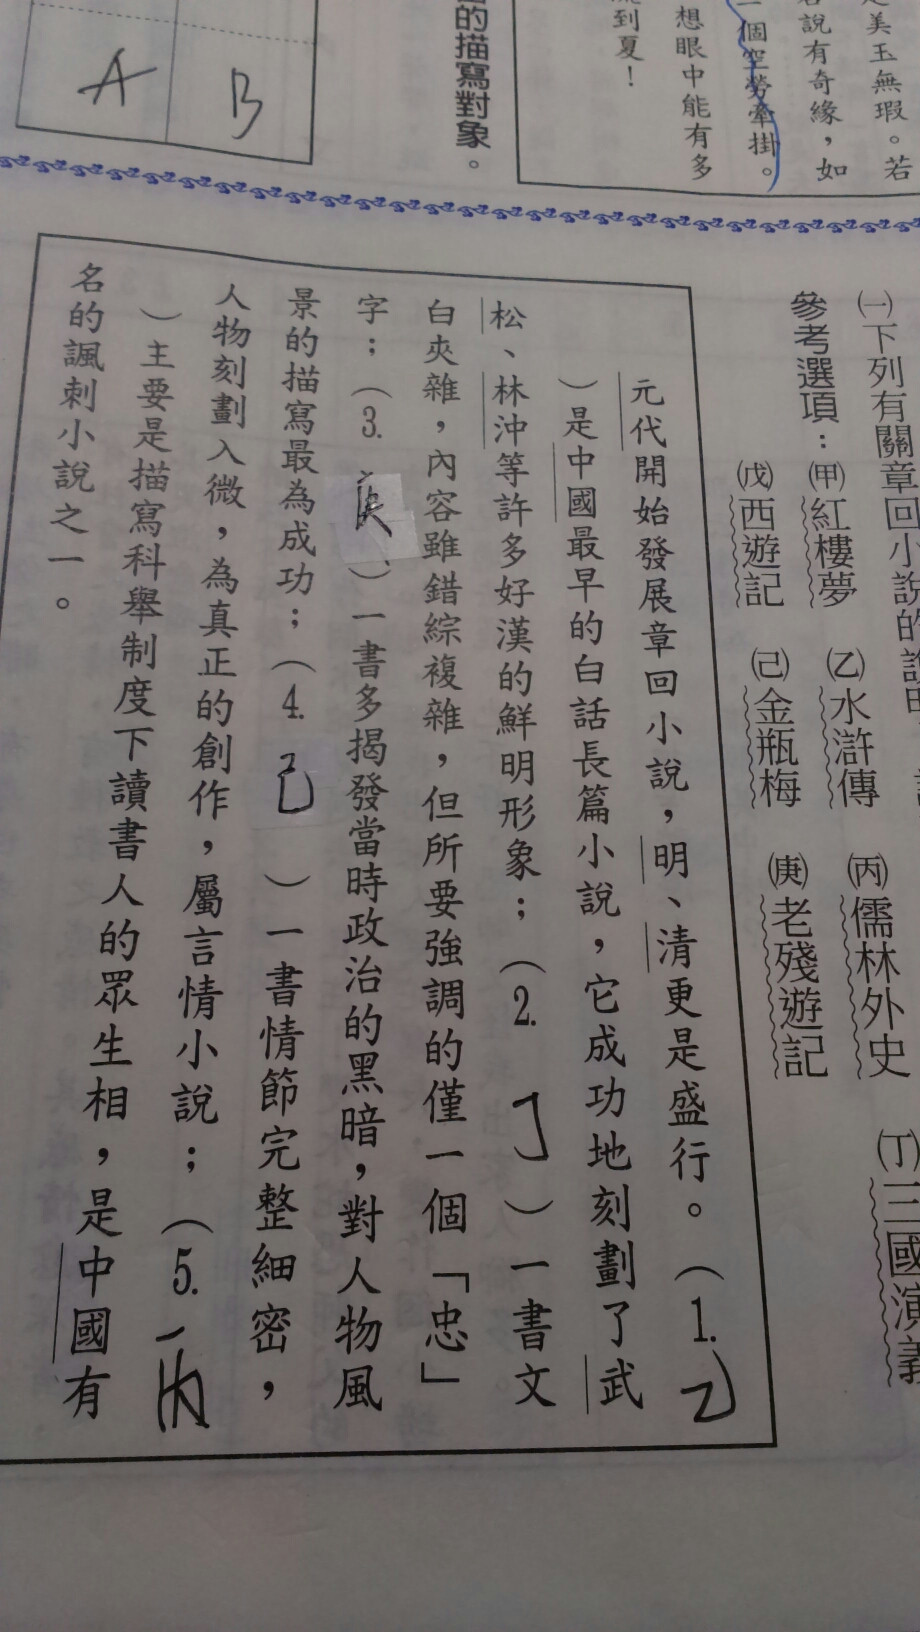 美玉無瑕。若
說有奇緣，如
一個空勞牽掛。
想眼中能有多
到夏！
的描寫對象。
B
A
㈠下列有關章回小說的說
參考選項：㈙紅樓夢 ㈚水滸傳 ㈛儒林外史 ㈜三國演義
(戊)西遊記 (己)金瓶梅 (庚)老殘遊記
元代開始發展章回小說，明、清更是盛行。（1.乙
）是中國最早的白話長篇小說，它成功地刻劃了武
松、林沖等許多好漢的鮮明形象；（2.丁）一書文
白夾雜，內容雖錯綜複雜，但所要強調的僅一個「忠」
字；（3.庚）一書多揭發當時政治的黑暗，對人物風
景的描寫最為成功；（4.己）一書情節完整細密，
人物刻劃入微，為真正的創作，屬言情小說；（5.丙
）主要是描寫科舉制度下讀書人的眾生相，是中國有
名的諷刺小說之一。